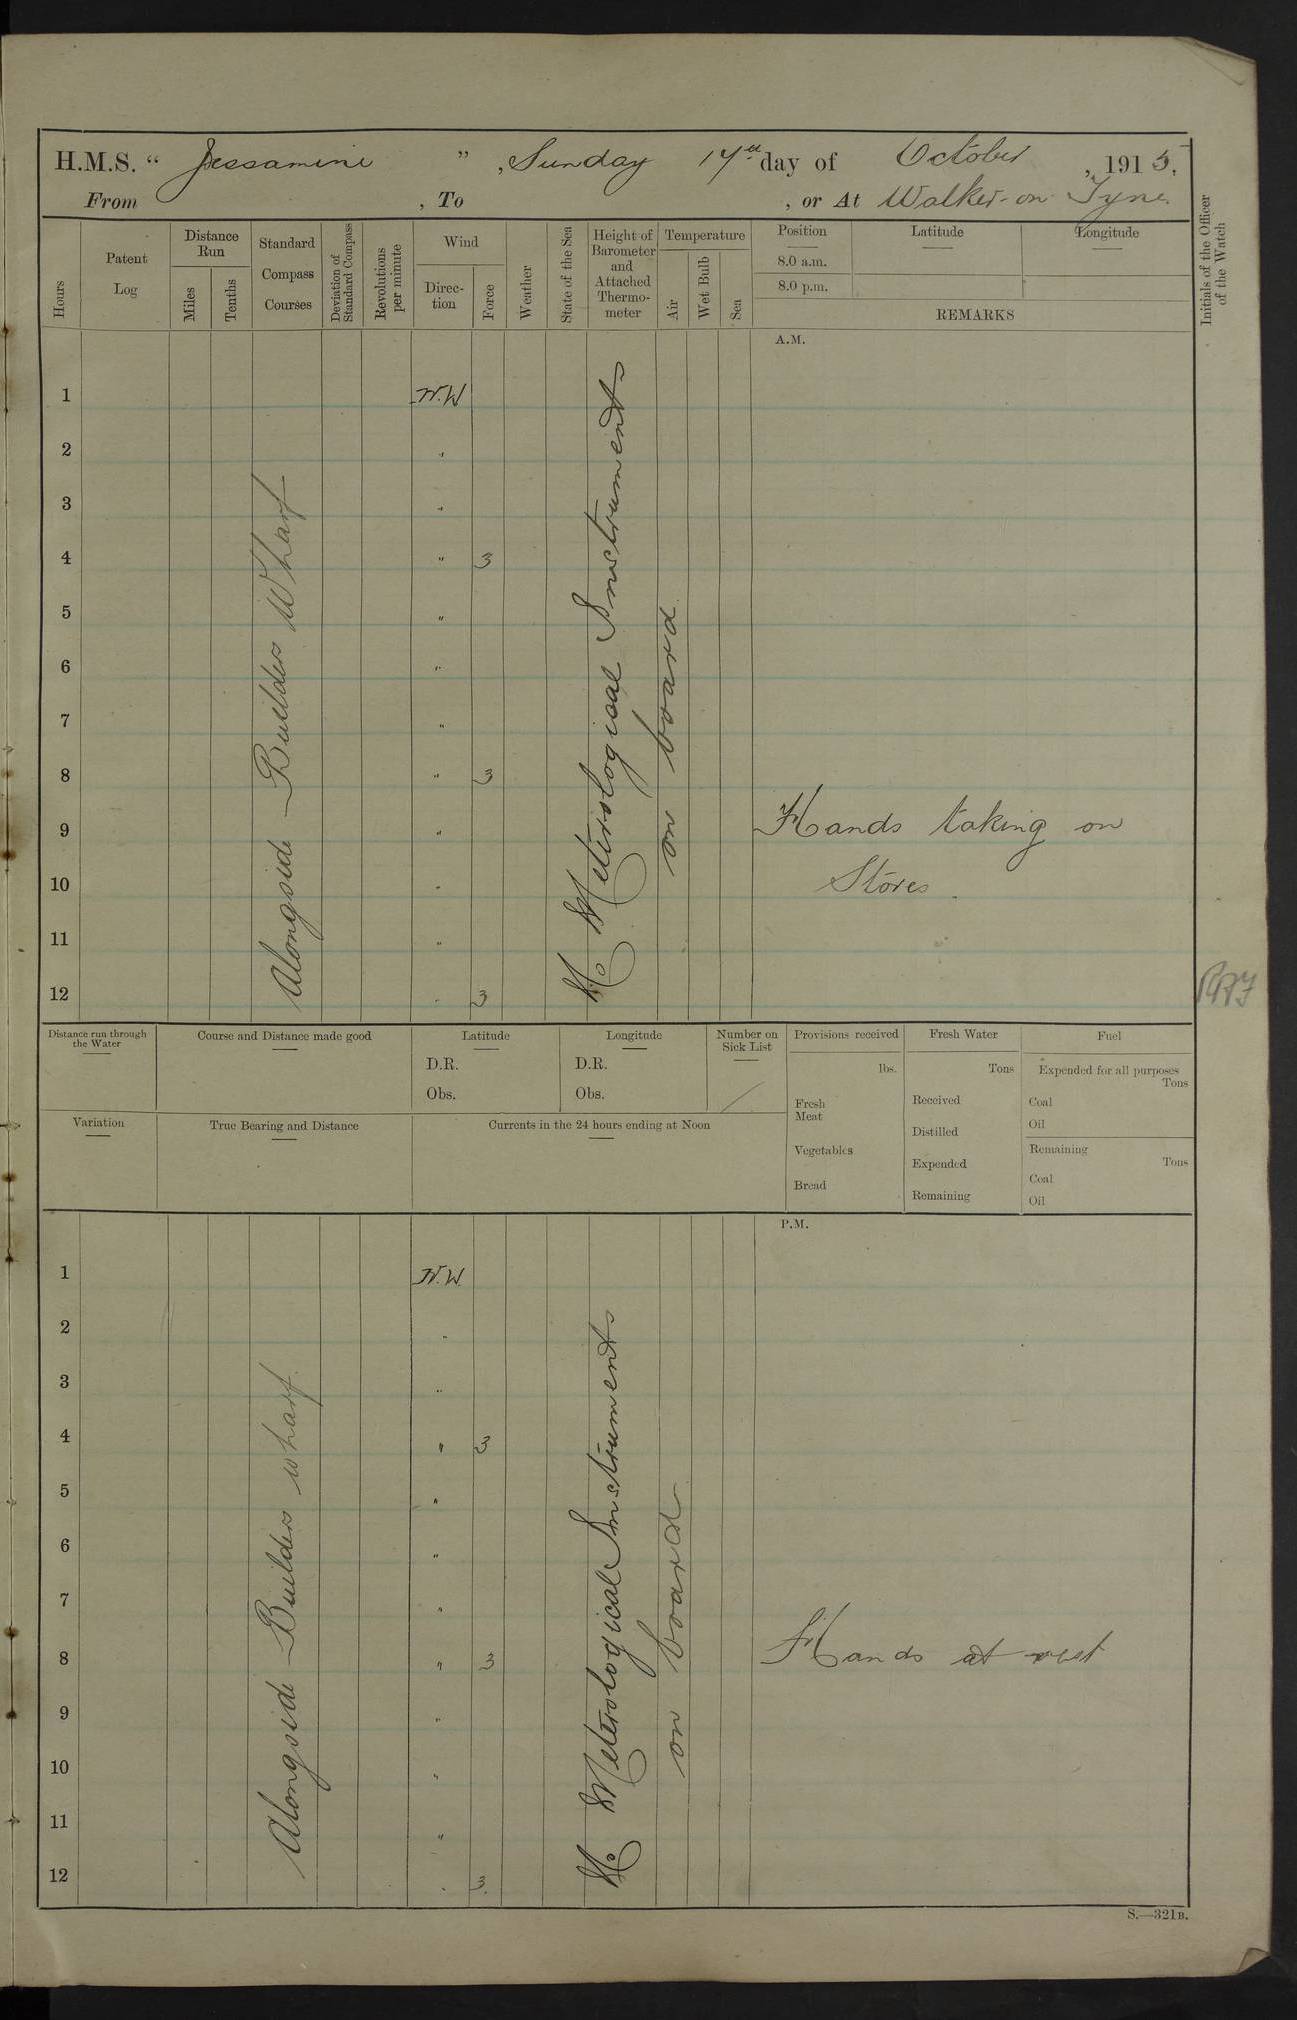 H.M.S. “ Jessamine ” , Sunday 17th day of October , 1915.
From , To , or At Walker-on-Tyne.
Hours
Patent Log
Distance Run
Miles
Tenths
Standard Compass Courses
Deviation of Standard Compass
Revolutions per minute
Wind
Direction
Force
Weather
State of the Sea
Height of Barometer and Attached Thermometer
Temperature
Air
Wet Bulb
Sea
Position
Latitude
Longitude
8.0 a.m.
8.0 p.m.
REMARKS
Initials of the Officer of the Watch
A.M.
1 N.W
2 "
3 "
4 " 3
5 "
6 "
7 "
8 " 3
9 " Hands taking on
10 " Stores
11 "
12 " 3
Alongside Builders Wharf
No Meterological Instruments
on board
Distance run through the Water
Course and Distance made good
Latitude
D.R.
Obs.
Longitude
D.R.
Obs.
Number on Sick List
Provisions received
lbs.
Fresh Meat
Vegetables
Bread
Fresh Water
Tons
Received
Distilled
Expended
Remaining
Fuel
Expended for all purposes
Tons
Coal
Oil
Remaining
Tons
Coal
Oil
Variation
True Bearing and Distance
Currents in the 24 hours ending at Noon
P.M.
1 N.W.
2 "
3 "
4 " 3
5 "
6 "
7 "
8 " 3 Hands at rest
9 "
10 "
11 "
12 " 3.
Alongside Builders wharf.
No Meterological Instruments
on board
S.—321B.